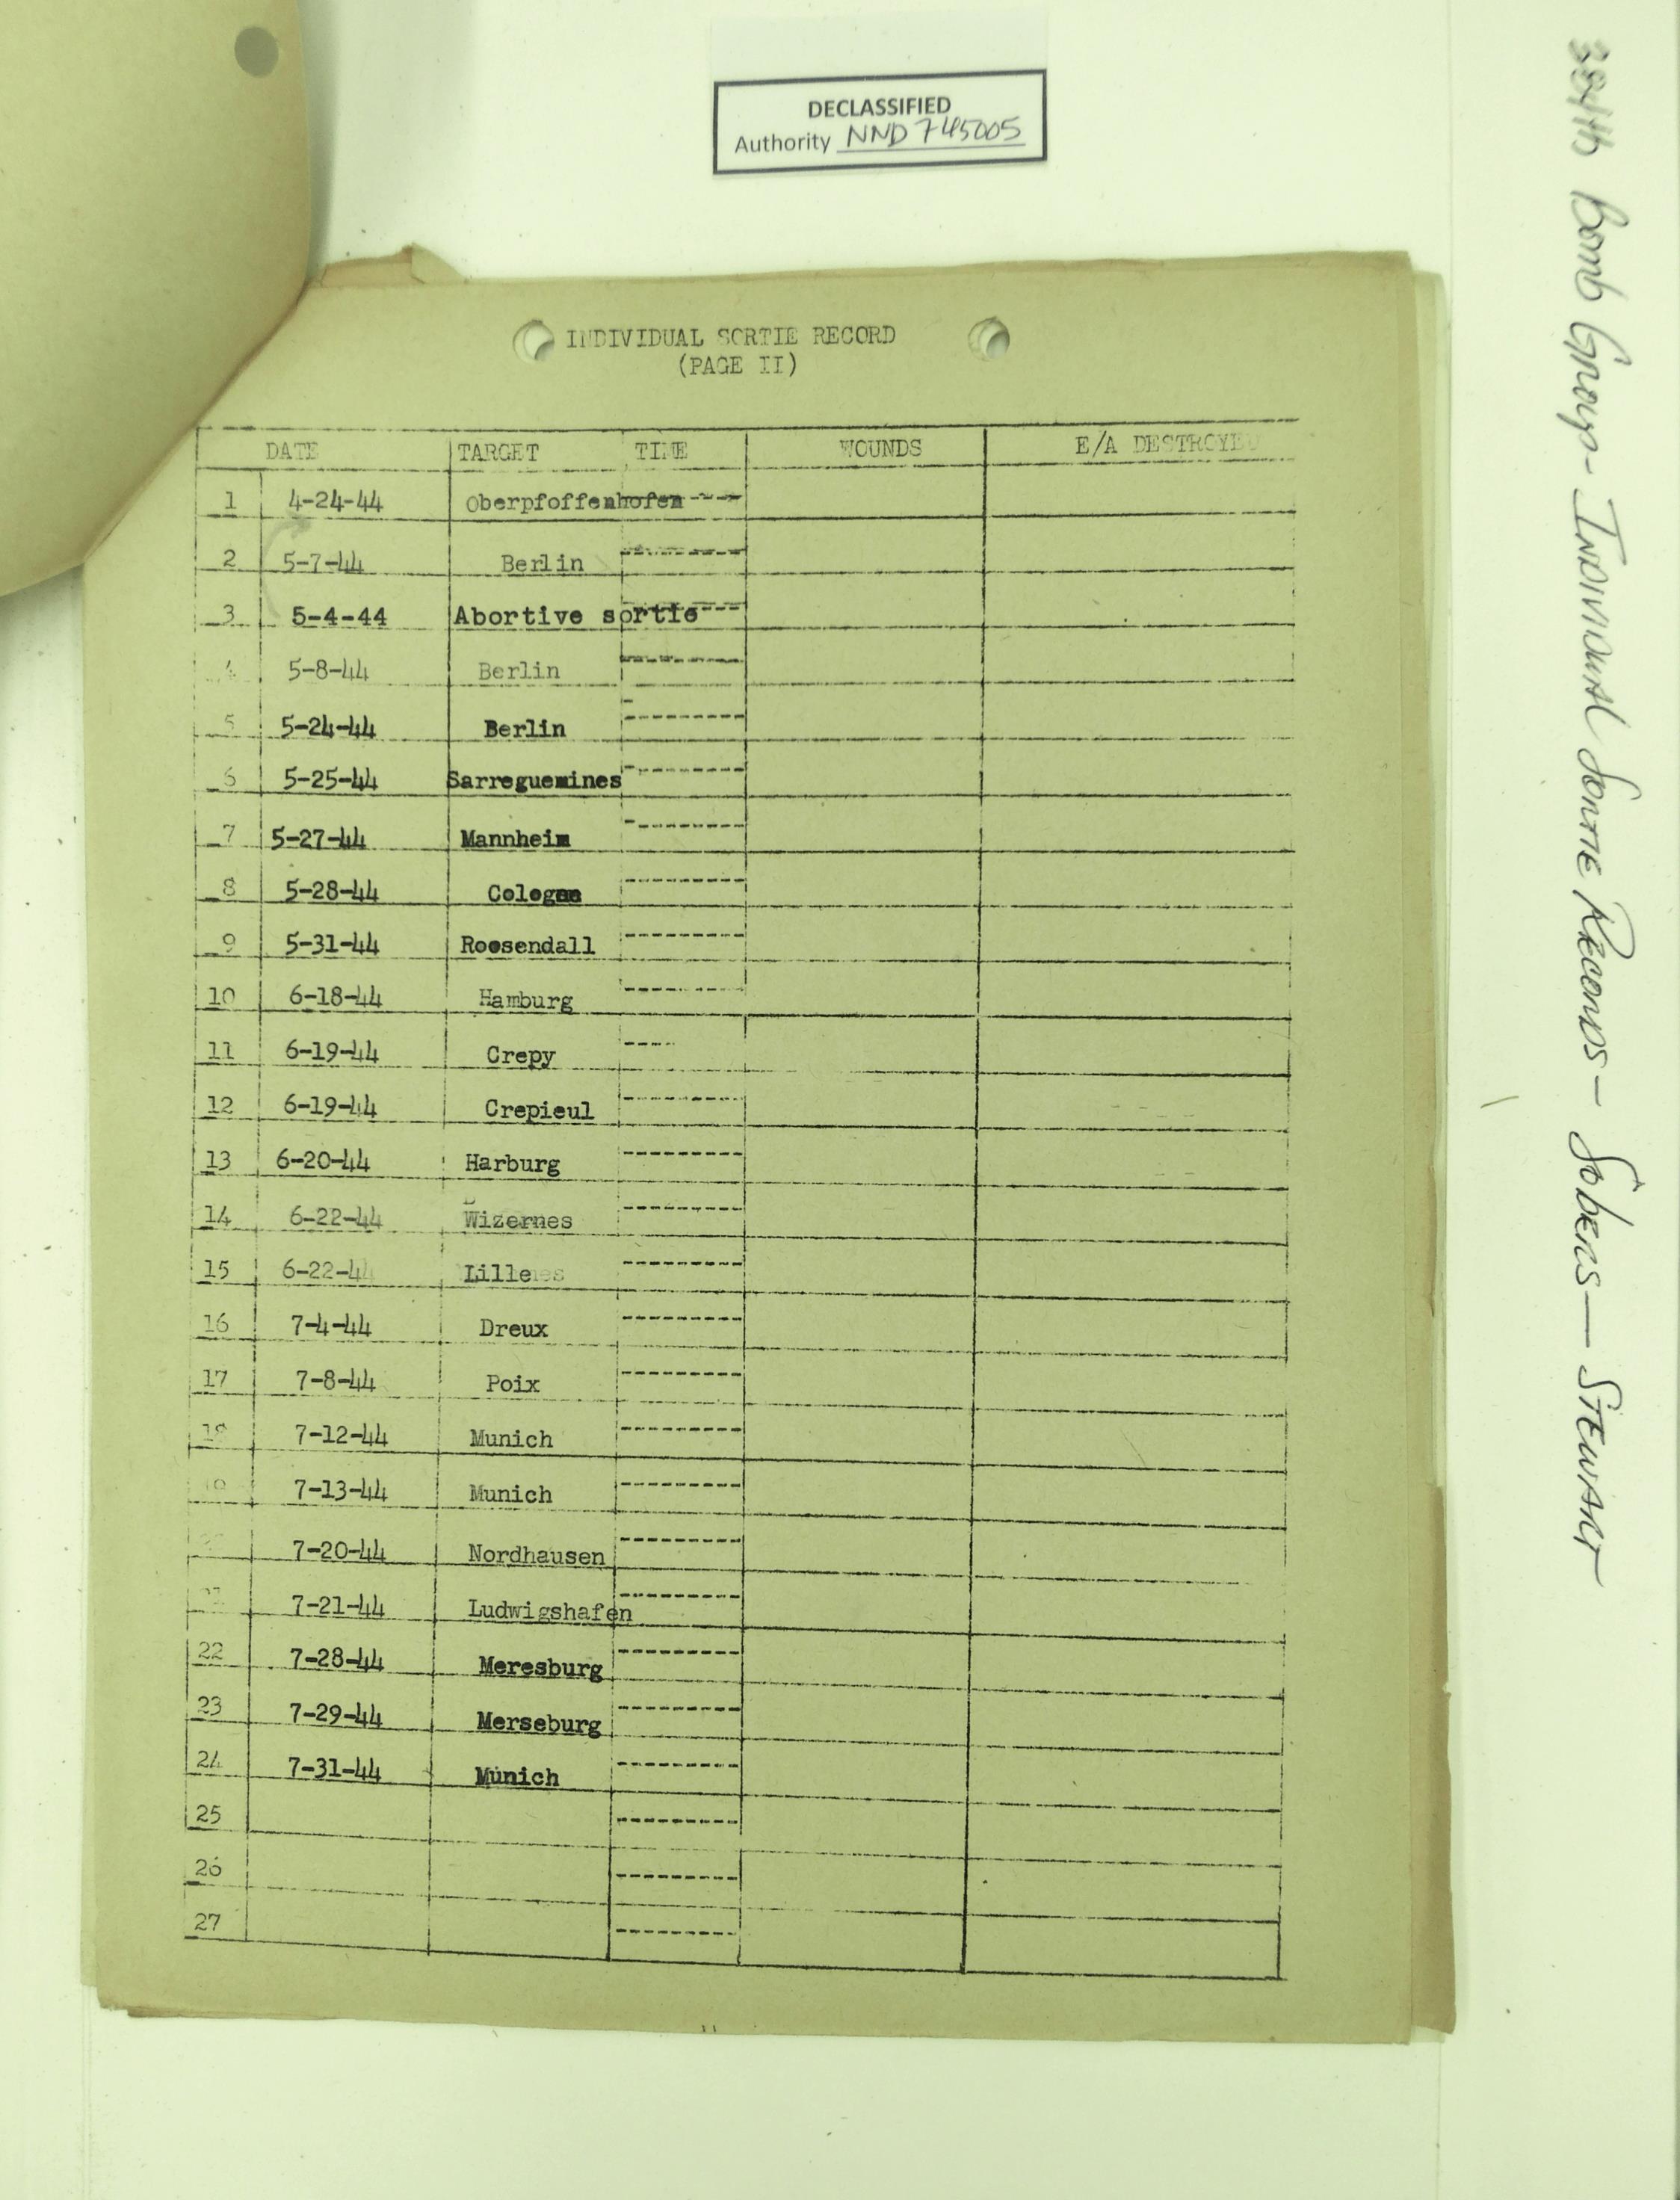 DECLASSIFIED
Authority NND 745005
INDIVIDUAL SORTIE RECORD
(PAGE II)
DATE TARGET TIME WOUNDS E/A DESTROYED
1 4-24-44 Oberpfoffenhofen
2 5-7-44 Berlin
3 5-4-44 Abortive sortie
4 5-8-44 Berlin
5 5-24-44 Berlin
6 5-25-44 Sarreguemines
7 5-27-44 Mannheim
8 5-28-44 Cologne
9 5-31-44 Roosendall
10 6-18-44 Hamburg
11 6-19-44 Crepy
12 6-19-44 Crepieul
13 6-20-44 Harburg
14 6-22-44 Wizernes
15 6-22-44 Lille
16 7-4-44 Dreux
17 7-8-44 Poix
18 7-12-44 Munich
19 7-13-44 Munich
7-20-44 Nordhausen
21 7-21-44 Ludwigshafen
22 7-28-44 Meresburg
23 7-29-44 Merseburg
24 7-31-44 Munich
25
26
27
384th Bomb Group - Individual Sortie Records - Sobers - Stewart